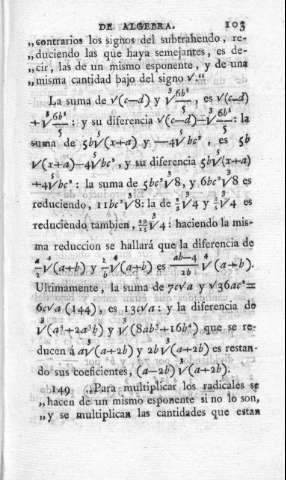 DE ALGEBRA. 103
„contrarios los signos del subtrahendo, re-
„duciendo las que haya semejantes, es de-
„cir, las de un mismo esponente, y de una
„misma cantidad bajo del signo √."
La suma de √(c—d) y ∛6b²/5, es √(c—d)
+∛6b²/5: y su diferencia √(c—d)—∛6b²/5: la
suma de 5b⁵√(x+a) y —4⁵√bc², es 5b
⁵√(x+a)—4⁵√bc², y su diferencia 5b⁵√(x+a)
+4⁵√bc²: la suma de 5bc²∛8, y 6bc²∛8 es
reduciendo, 11bc²∛8: la de ∛4 y ∛4 es
reduciendo tambien, ∛4: haciendo la mis-
ma reduccion se hallará que la diferencia de
⁴√(a+b) y ⁴√(a+b) es (ab—4)/2b ⁴√(a+b).
Ultimamente, la suma de 7c√a y √36ac²=
6c√a (144), es 13c√a: y la diferencia de
∛(a⁴+2a³b) y ∛(8ab³+16b⁴) que se re-
ducen á a∛(a+2b) y 2b∛(a+2b) es restan-
do sus coeficientes, (a—2b)∛(a+2b).
149 „Para multiplicar los radicales se
„hacen de un mismo esponente si no lo son,
„y se multiplican las cantidades que estan